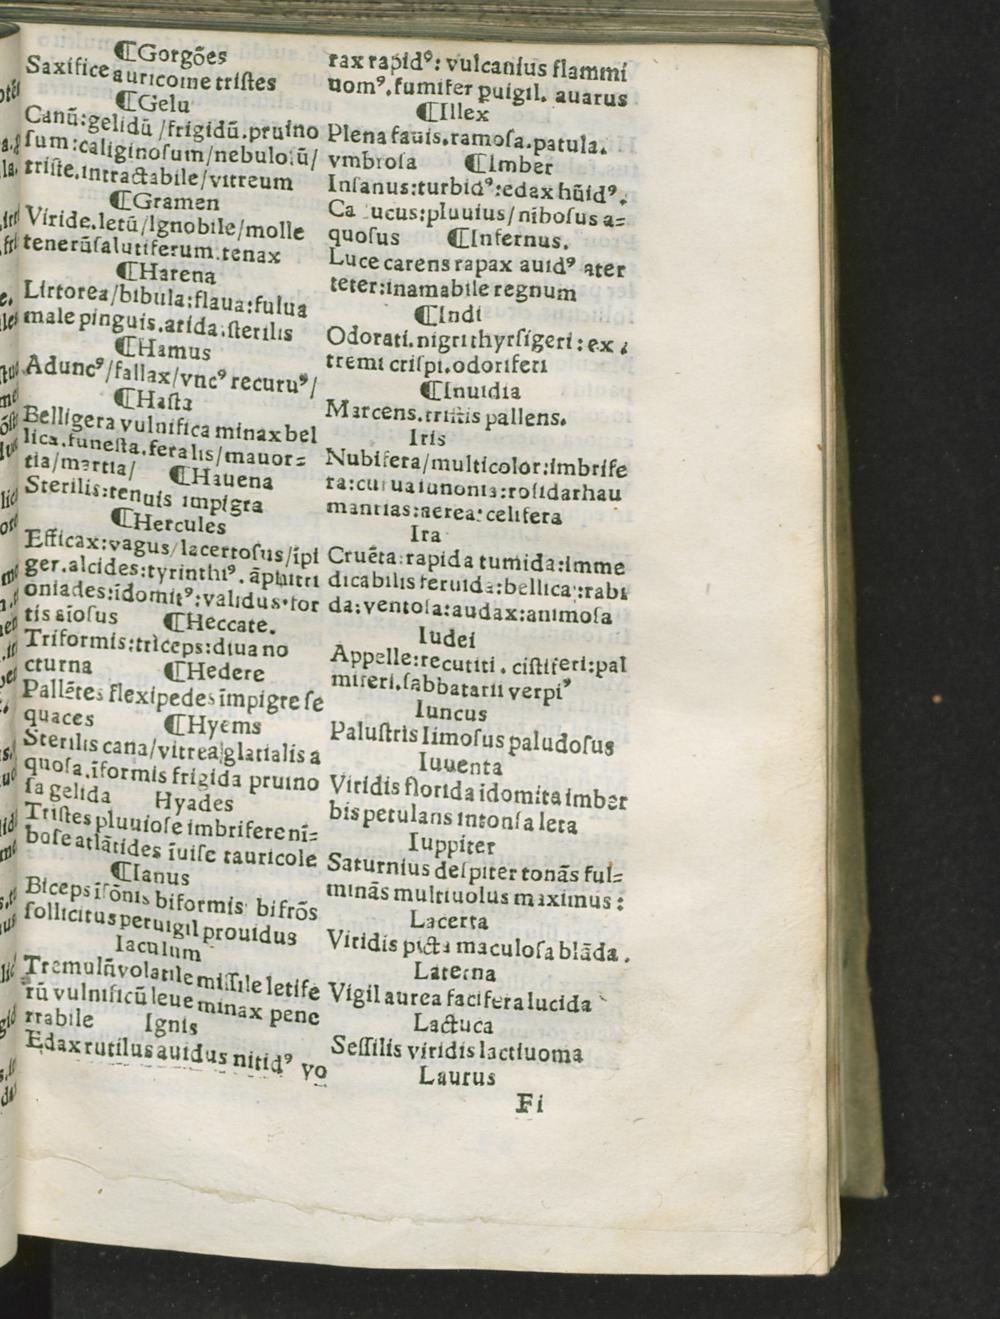 ⁋Gorgões
Saxifice auricome triſtes
⁋Gelu
Canū:gelidū /frigidū.pruino
ſum:caliginoſum/nebulo.ū/
triſte.intractabile/vitreum
⁋Gramen
Viride.letū/Ignobile/molle
tenerūſalutiferum.tenax
⁋Harena
Lirtorea/bibula:flaua:fulua
male pinguis.arida.ſterilis
⁋Hamus
Aduncꝰ/fallax/vncꝰ recuruꝰ/
⁋Haſta
Belligera vulnifica minax bel
lica.funeſta.feralis/mauor=
tia/martia/ ⁋Hauena
Sterilis:tenuis impigra
⁋Hercules
Efficax:vagus/lacertoſus/īpi
ger.alcides:tyrinthiꝰ. āphitri
oniades:īdomitꝰ:validus.for
tis aīoſus ⁋Heccate.
Triformis:triceps:diua no
cturna ⁋Hedere
Pallētes flexipedes īmpigre ſe
quaces ⁋Hyems
Sterilis cana/vitrea/glatialis a
quoſa.īformis frigida pruino
ſa gelida Hyades
Triſtes pluuioſe imbrifere nī=
boſe atlātides īuiſe tauricole
⁋Ianus
Biceps iſōnis biformis bifrōs
ſollicitus peruigil prouidus
Iaculum
Tremulū volatile miſſile letife
rū vulnificū leue minax pene
rrabile Ignis
Edax rutilus auidus nitidꝰ vo
rax rapidꝰ: vulcanius flammi
uomꝰ.fumifer puigil. auarus
⁋Illex
Plena fauis.ramoſa.patula.
vmbroſa ⁋Imber
Inſanus:turbidꝰ:edax hūidꝰ.
Ca ucus:pluuius/niboſus a=
quoſus ⁋Infernus.
Luce carens rapax auidꝰ ater
teter:inamabile regnum
⁋Indi
Odorati.nigri thyrſigeri: ex
tremi criſpi.odoriferi
⁋Inuidia
Marcens.triſtis pallens.
Iris
Nubifera/multicolor:imbrife
ra:curua iunonia:roſida rhau
mantias:aerea:celifera
Ira
Cruēta:rapida tumida:imme
dicabilis feruida:bellica:rabi
da:ventoſa:audax:animoſa
Iudei
Appelle:recutiti . ciſtiferi:pal
miferi.ſabbatarii verpiꝰ
Iuncus
Paluſtris limoſus paludoſus
Iuuenta
Viridis florida idomita imber
bis petulans intonſa leta
Iuppiter
Saturnius deſpiter tonās ful=
minās multiuolus maximus:
Lacerta
Viridis picta maculoſa blāda.
Laterna
Vigil aurea facifera lucida
Lactuca
Seſſilis viridis lactiuoma
Laurus
Fi